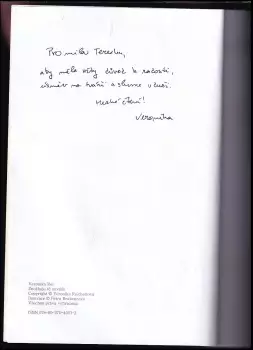 Pro milou Terezku,
aby měla vždy důvod k radosti,
úsměv na tváři a slunce v duši.
Hezké čtení!
Veronika
Copyright © Veronika
Všechna práva vyhrazena
ISBN 978-80-